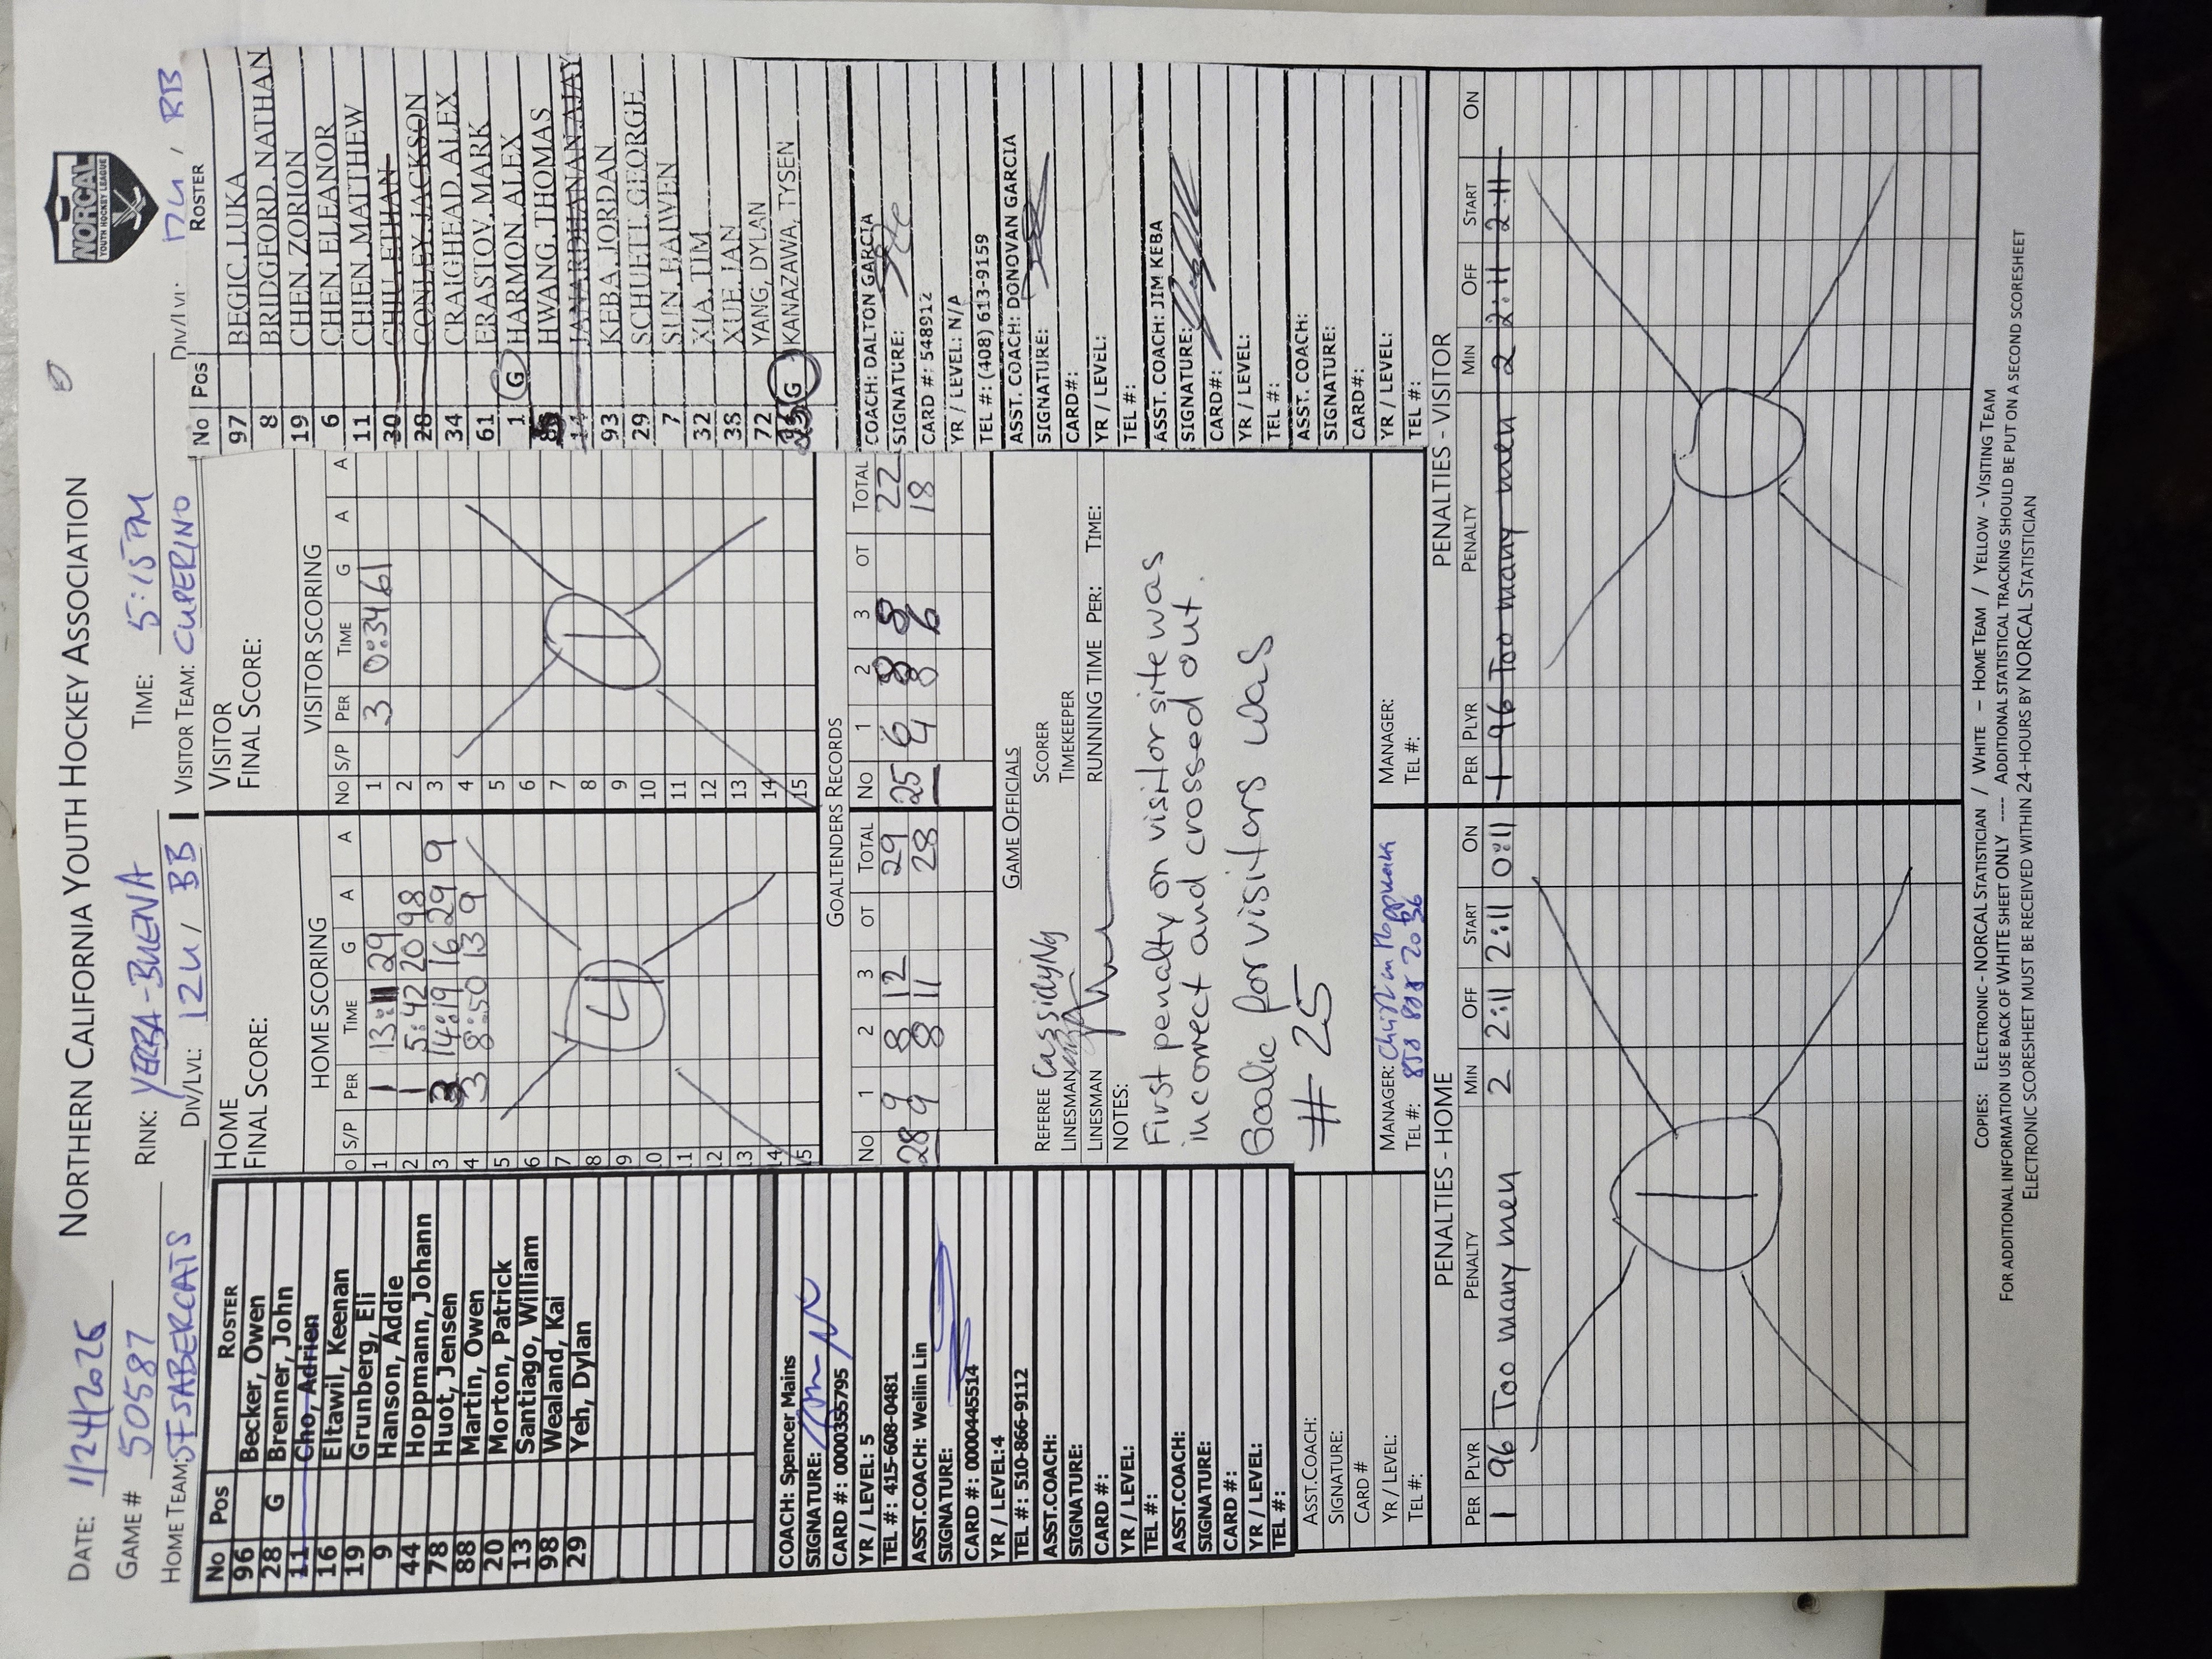 NORTHERN CALIFORNIA YOUTH HOCKEY ASSOCIATION
NORCAL
YOUTH HOCKEY LEAGUE
DATE: 1/24/2026
GAME # 50587 RINK: YERBA-BUENA TIME: 5:15 PM
HOME TEAM: SF SABERCATS DIV/LVL: 12U / BB VISITOR TEAM: CUPERINO DIV/LVL: 12U / BB
No Pos ROSTER
96 Becker, Owen
28 G Brenner, John
11 Cho, Adrien
16 Eltawil, Keenan
19 Grunberg, Eli
9 Hanson, Addie
44 Hoppmann, Johann
78 Huot, Jensen
88 Martin, Owen
20 Morton, Patrick
13 Santiago, William
98 Wealand, Kai
29 Yeh, Dylan
COACH: Spencer Mains
SIGNATURE:
CARD #: 0000355795
YR / LEVEL: 5
TEL #: 415-608-0481
ASST.COACH: Weilin Lin
SIGNATURE:
CARD #: 0000445514
YR / LEVEL: 4
TEL #: 510-866-9112
ASST.COACH:
SIGNATURE:
CARD #:
YR / LEVEL:
TEL #:
ASST.COACH:
SIGNATURE:
CARD #:
YR / LEVEL:
TEL #:
ASST.COACH:
SIGNATURE:
CARD #
YR / LEVEL:
TEL #:
HOME
FINAL SCORE:
HOME SCORING
O S/P PER TIME G A A
1 1 29
2 1 5:42 20 98
3 3 14:19 16 29 9
4 3 8:50 13 9
5
6
7
8
9
10
11
12
13
14
15
4
VISITOR
FINAL SCORE:
VISITOR SCORING
No S/P PER TIME G A A
1 3 0:34 61
2
3
4
5
6
7
8
9
10
11
12
13
14
15
1
GOALTENDERS RECORDS
No 1 2 3 OT TOTAL No 1 2 3 OT TOTAL
28 9 8 12 29 25 6 8 8 22
9 8 11 28 4 8 6 18
GAME OFFICIALS
REFEREE Cassidy Ng SCORER
LINESMAN TIMEKEEPER
LINESMAN RUNNING TIME PER: TIME:
NOTES:
First penalty on visitor site was
incorrect and crossed out.
Goalie for visitors was
# 25
MANAGER: Christin Hoppmann MANAGER:
TEL #: TEL #:
No Pos ROSTER
97 BEGIC, LUKA
8 BRIDGFORD, NATHAN
19 CHEN, ZORION
6 CHEN, ELEANOR
11 CHEN, MATTHEW
30 CHIU, ETHAN
28 CONLEY, JACKSON
34 CRAIGHEAD, ALEX
61 ERASTOV, MARK
1 G HARMON, ALEX
HWANG, THOMAS
14 JANARDHANAN, AJAY
93 KEBA, JORDAN
29 SCHUETT, GEORGE
7 SUN, HAIWEN
32 XIA, TIM
38 XUE, IAN
72 YANG, DYLAN
25 G KANAZAWA, TYSEN
COACH: DALTON GARCIA
SIGNATURE:
CARD #: 548912
YR / LEVEL: N/A
TEL #: (408) 613-9159
ASST. COACH: DONOVAN GARCIA
SIGNATURE:
CARD#:
YR / LEVEL:
TEL #:
ASST. COACH: JIM KEBA
SIGNATURE:
CARD#:
YR / LEVEL:
TEL #:
ASST. COACH:
SIGNATURE:
CARD#:
YR / LEVEL:
TEL #:
PENALTIES - HOME
PER PLYR PENALTY MIN OFF START ON
1 96 Too many men 2 2:11 2:11 0:11
1
PENALTIES - VISITOR
PER PLYR PENALTY MIN OFF START ON
1 96 Too many men 2 2:11 2:11
COPIES: ELECTRONIC - NORCAL STATISTICIAN / WHITE - HOME TEAM / YELLOW - VISITING TEAM
FOR ADDITIONAL INFORMATION USE BACK OF WHITE SHEET ONLY ---- ADDITIONAL STATISTICAL TRACKING SHOULD BE PUT ON A SECOND SCORESHEET
ELECTRONIC SCORESHEET MUST BE RECEIVED WITHIN 24-HOURS BY NORCAL STATISTICIAN